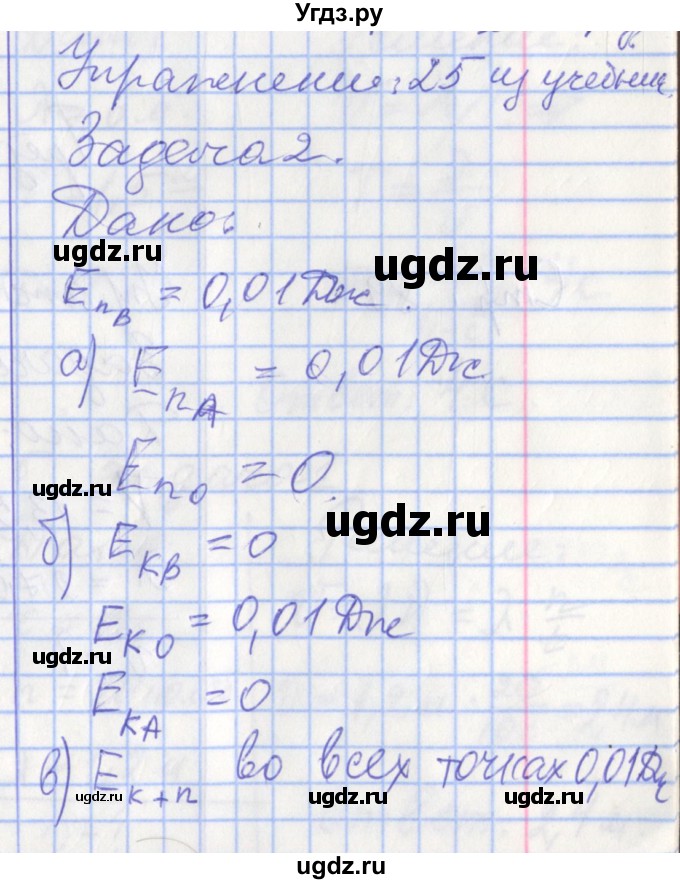 Угдз.ру
Упражнение 25 из учебник.
Задача 2.
Дано:
ugdz.ru
ugdz.ru
EпB = 0,01 Дж.
а) EпA = 0,01 Дж.
ugdz.ru
Eп0 = 0.
ugdz.ru
б) EкB = 0
EкO = 0,01 Дж
ugdz.ru
EкA = 0
в) Eк+п во всех точках 0,01 Дж
ugdz.ru
ugdz.ru
ugdz.ru
ugdz.ru